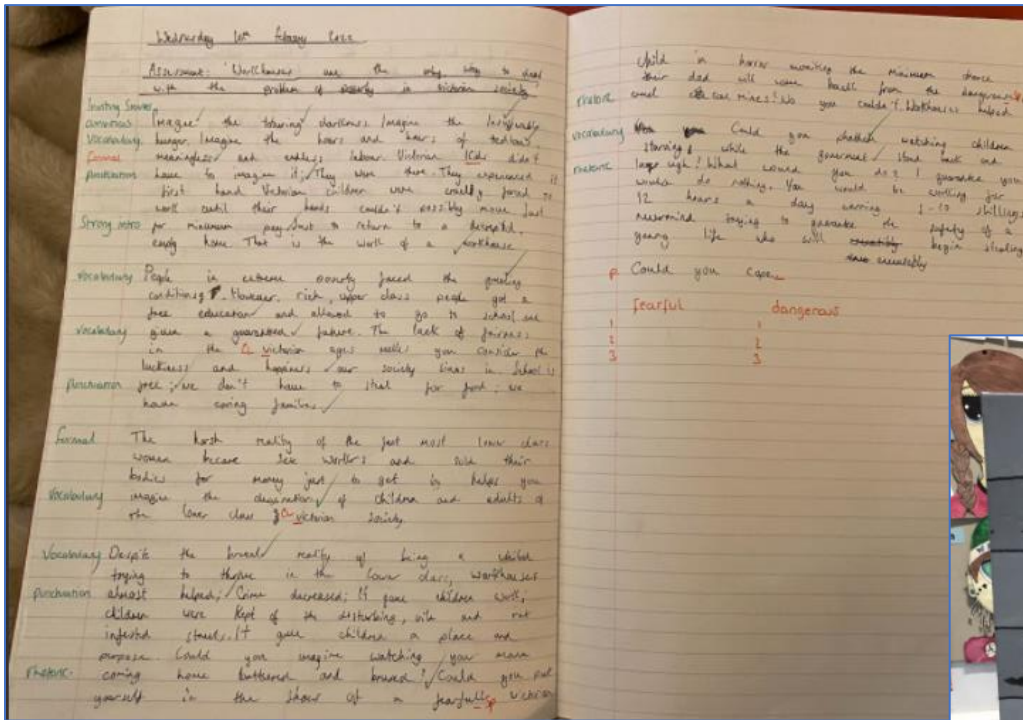 Wednesday February 2022
Assessment: 'Workhouses are the only way to deal
with the problem of poverty in Victorian society'
Imagine the darkness. Imagine the
Vocabulary hunger. Imagine the hours and hours of tedious,
Formal meaningless and endless labour. Victorian kids didn't
punctuation have to imagine it; They were there. They experienced it
first hand. Victorian children were cruelly forced to
work until their hands couldn't possibly move just
Strong intro for minimum pay just to return to a
empty home. That is the work of a workhouse
Vocabulary People in extreme poverty faced the
conditions. However, rich, upper class people got a
free education and allowed to go to school and
Vocabulary given a guaranteed future. The lack of fairness
in the Victorian ages makes you consider the
luckiness and happiness our society lives in. School is
punctuation free; we don't have to steal for food; we
have caring families.
formal The harsh reality of the fact most lower class
women became sex workers and sold their
bodies for money just to get by helps you
Vocabulary imagine the desperation of children and adults of
the lower class Victorian society.
Vocabulary Despite the brutal reality of being a child
trying to thrive in the lower class, workhouses
punctuation almost helped; Crime decreased; It gave children work;
children were kept of the disturbing, vile and rat
infested streets. It gave children a place and
purpose. Could you imagine watching you mam
rhetoric coming home battered and bruised? Could you put
yourself in the shoes of a fearfull sp Victorian
child in horror the minimum chance
their dad will come back from the dangerous
rhetoric cruel coal mines? No you couldn't. Workhouses helped
Vocabulary Could you watching children
starving while the stood back and
rhetoric laugh? What would you do? I guarantee you
would do nothing. You would be working for
12 hours a day earning 1-10 shillings
nevermind trying to guarantee the safety of a
young life who will begin stealing
P Could you cope
fearful dangerous
1 1
2 2
3 3